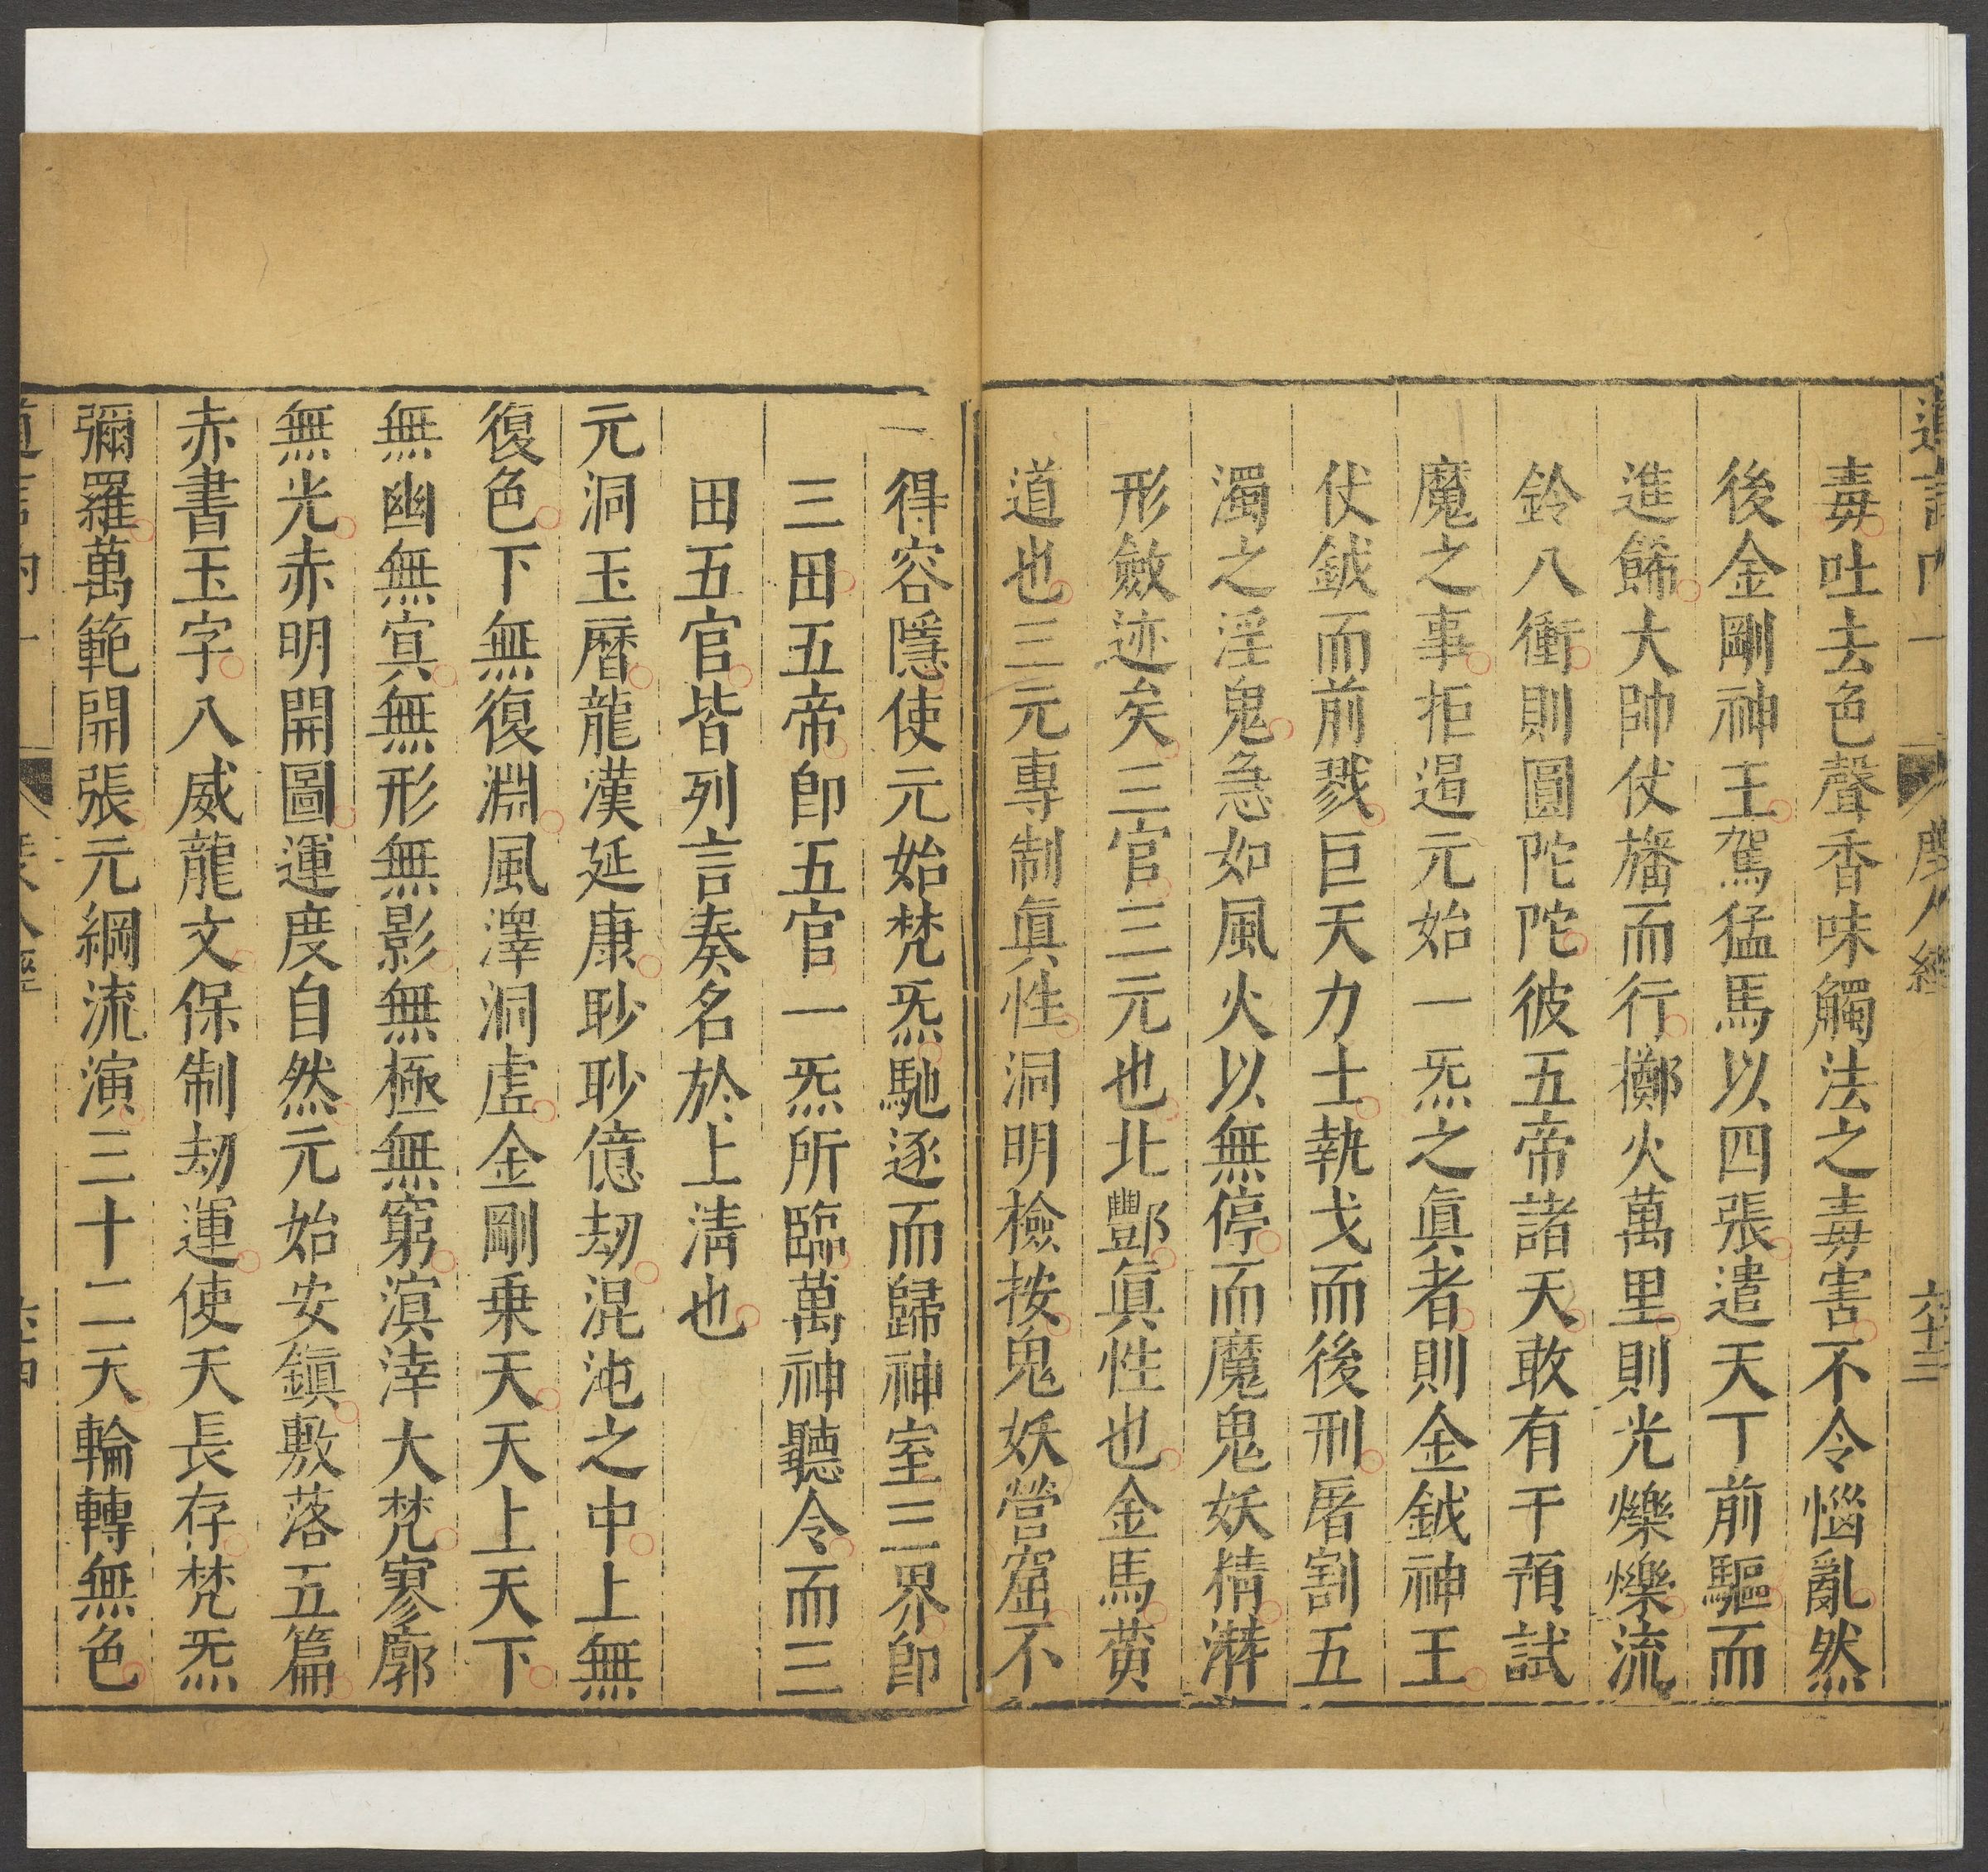 度人經
六十三
毒吐去色聲香味觸法之毒害不令惱亂然
後金剛神王駕猛馬以四張遣天丁前驅而
進餙大帥仗旛而行擲火萬里則光爍爍流
鈴八衝則圓陀陀彼五帝諸天敢有干預試
魔之事拒遏元始一炁之眞者則金鉞神王
仗鉞而前戮巨天力士執戈而後刑屠割五
濁之淫鬼急如風火以無停而魔鬼妖精潛
形斂迹矣三官三元也北酆眞性也金馬黃
道也三元專制眞性洞明檢按鬼妖營窟不
得容隱使元始梵炁馳逐而歸神室三界卽
三田五帝卽五官一炁所臨萬神聽令而三
田五官皆列言奏名於上清也
元洞玉曆龍漢延康眇眇億劫混沌之中上無
復色下無復淵風澤洞虛金剛乗天天上天下
無幽無寘無形無影無極無窮溟涬大梵寥廓
無光赤明開圖運度自然元始安鎮敷落五篇
赤書玉字八威龍文保制劫運使天長存梵炁
彌羅萬範開張元綱流演三十二天輪轉無色